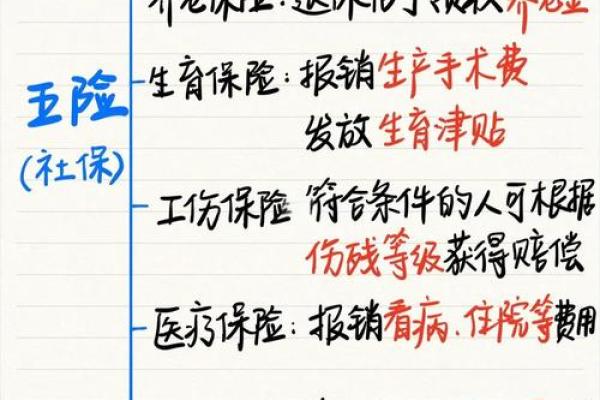 养老保险:退休后可领取养老金
生育保险:报销生产手术费
五险
发放生育津贴
(社保)
工伤保险 符合条件的人可根据
伤残等级获得赔偿
医疗保险:报销看病、住院等费用